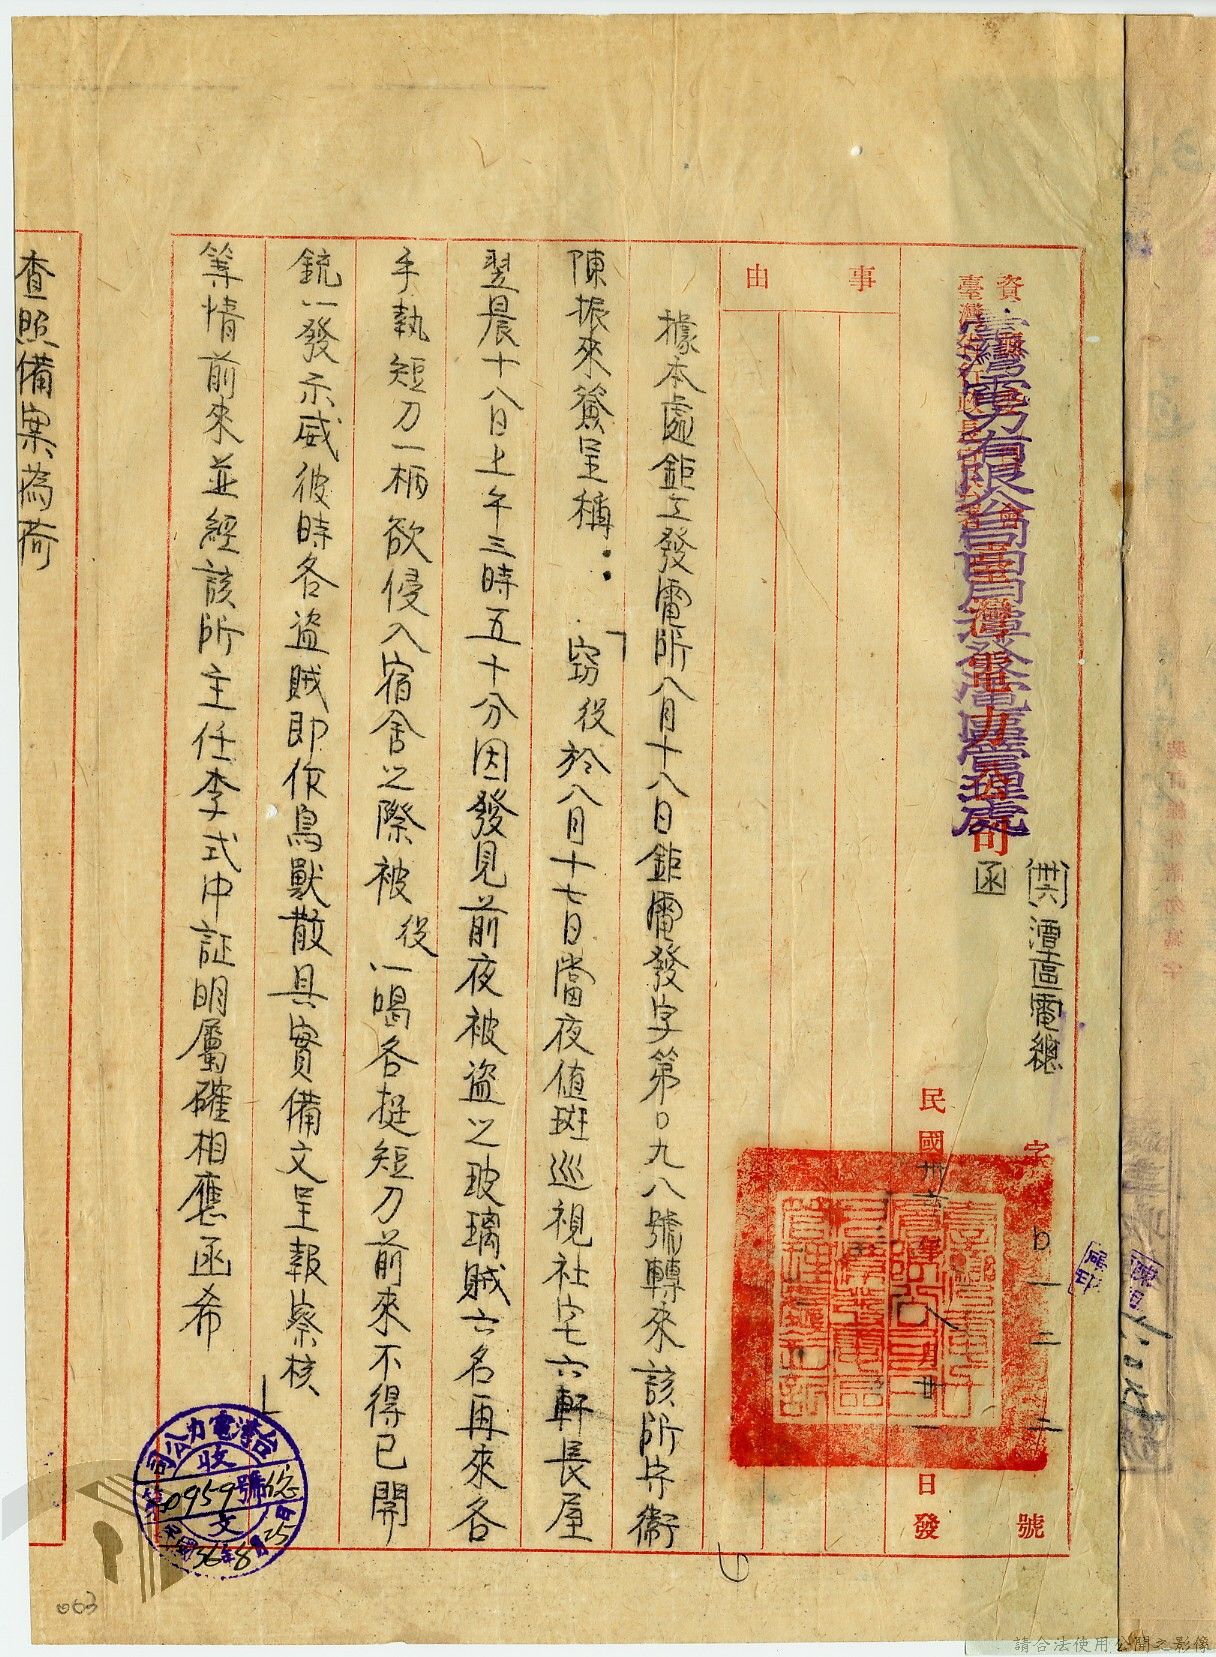 臺灣電力有限公司日月潭發電區管理處
函
卅六 潭區電總
字
0一二二
號
民國卅六年八月廿一日發
事由
據本處鉅工發電所八月十八日鉅電發字第0九八號轉來該所守衛
陳振來簽呈稱：「竊役於八月十七日當夜值班巡視社宅六軒長屋
翌晨十八日上午三時五十分因發見前夜被盜之玻璃賊六名再來各
手執短刀一柄欲侵入宿舍之際被役一喝各挺短刀前來不得已開
銃一發示威彼時各盜賊即作鳥獸散具實備文呈報察核」
等情前來並經該所主任李式中証明屬確相應函希
查照備案為荷
台灣電力公司
收
0959號
文
36年8月25日
003
請合法使用公開之影像